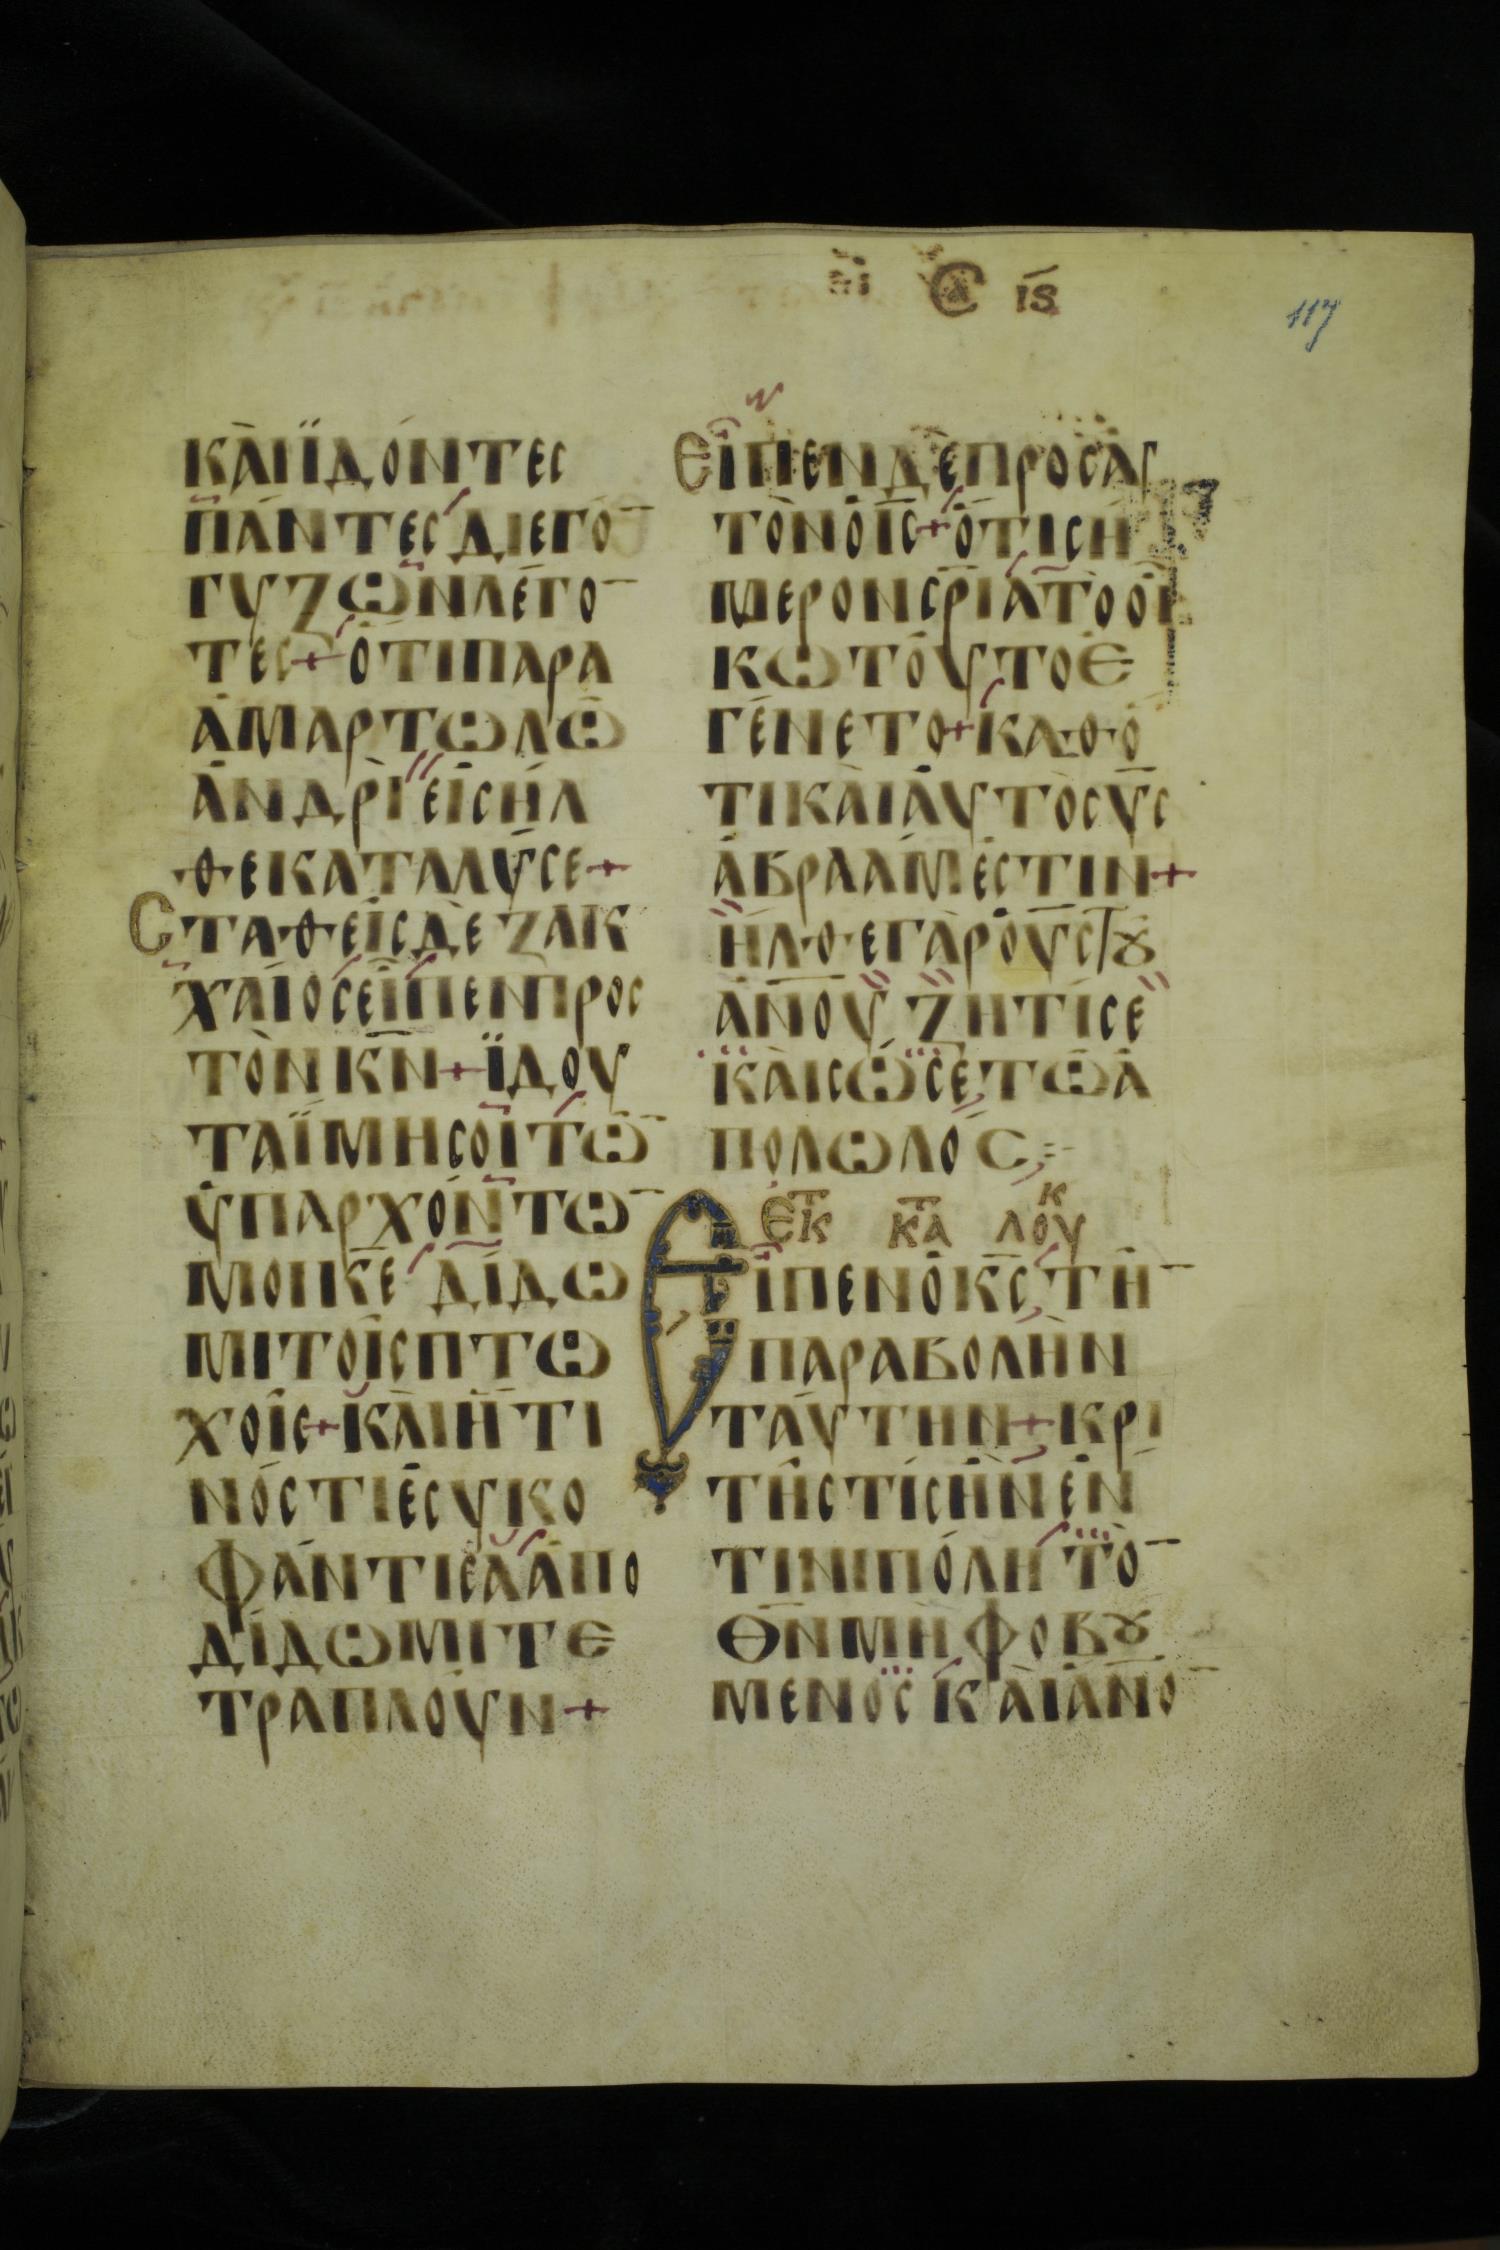 ϵι Ϲ ιϛ
117
ΚΑΙΪΔΟΝΤΕϹ
ΠΑΝΤΕϹΔΙΕΓΟ̅
ΓΥΖΩΝΛΕΓΟ̅
ΤΕϹ+ΟΤΙΠΑΡΑ
ΑΜΑΡΤΩΛΩ
ΑΝΔΡΙΕΙϹΗΛ
ΘΕΚΑΤΑΛΥϹΕ+
ϹΤΑΘΕΙϹΔΕΖΑΚ
ΧΑΙΟϹΕΙΠΕΝΠΡΟϹ
ΤΟΝΚ̅Ν̅+ΪΔΟΥ
ΤΑΪΜΗϹΟΙΤΩ̅
ΥΠΑΡΧΟΝΤΩ̅
ΜΟΙΚ̅Ε̅ΔΙΔΩ
ΜΙΤΟΙϹΠΤΩ
ΧΟΙϹ+ΚΑΙΗΤΙ
ΝΟϹΤΙΕϹΥΚΟ
ΦΑΝΤΙϹΑΑΠΟ
ΔΙΔΩΜΙΤΕ
ΤΡΑΠΛΟΥΝ+
ΕΙΠΕΝΔΕΠΡΟϹΑΥ
ΤΟΝΟΙ̅Ϲ̅+ΟΤΙϹΗ
ΜΕΡΟΝϹ̅Ρ̅ΙΑΤΟΟΙ
ΚΩΤΟΥΤΟΕ
ΓΕΝΕΤΟ+ΚΑΘΟ
ΤΙΚΑΙΑΥΤΟϹΥ̅Ϲ̅
ΑΒΡΑΑΜΕϹΤΙΝ+
ΗΛΘΕΓΑΡΟΥ̅Ϲ̅ΤȢ
ΑΝ̅ΟΥΖΗΤΙϹΕ
ΚΑΙϹΩϹΕΤΩΑ
ΠΟΛΩΛΟϹ:-
ΕΚ ΚΤΑ ΛΟΥΚ
ΕΙΠΕΝΟΚ̅Ϲ̅ΤΗ̅
ΠΑΡΑΒΟΛΗΝ
ΤΑΥΤΗΝ+ΚΡΙ
ΤΗϹΤΙϹΗΝΕΝ
ΤΙΝΙΠΟΛΗΤΟ̅
Θ̅Ν̅ΜΗΦΟΒȢ
ΜΕΝΟϹΚΑΙΑΝ̅Ο̅